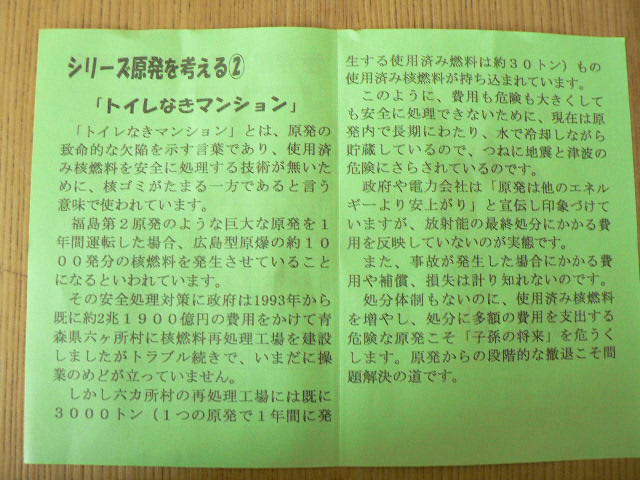 シリーズ原発を考える②
「トイレなきマンション」
「トイレなきマンション」とは、原発の
致命的な欠陥を示す言葉であり、使用済
み核燃料を安全に処理する技術が無いい
ために、核ゴミがたまる一方であると言う
意味で使われています。
福島第２原発のような巨大な原発を１
年間運転した場合、広島型原爆の約１０
００発分の核燃料を発生させていること
になるといわれています。
その安全処理対策に政府は1993年から
既に約2兆１９００億円の費用をかけて青
森県六ヶ所村に核燃料再処理工場を建設
しましたがトラブル続きで、いまだに操
業のめどが立っていません。
しかし六カ所村の再処理工場には既に
３０００トン（１つの原発で１年間に発
生する使用済み燃料は約３０トン）もの
使用済み核燃料が持ち込まれています。
このように、費用も危険も大きくして
も安全に処理できないために、現在は原
発内で長期にわたり、水で冷却しながら
貯蔵しているので、つねに地震と津波の
危険にさらされているのです。
政府や電力会社は「原発は他のエネル
ギーより安上がり」と宣伝し印象づけて
いますが、放射能の最終処分にかかる費
用を反映していないのが実態です。
また、事故が発生した場合にかかる費
用や補償、損失は計り知れないのです。
処分体制もないのに、使用済み核燃料
を増やし、処分に多額の費用を支出する
危険な原発こそ「子孫の将来」を危うく
します。原発からの段階的な撤退こそ問
題解決の道です。